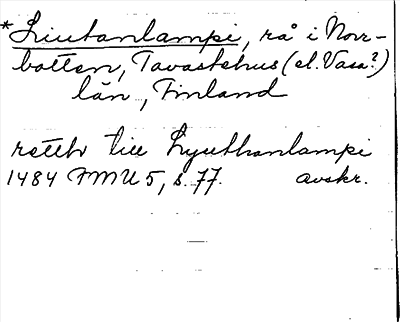 *Liutanlampi, rå i Norr-
botten, Tavastehus (el. Vasa?)
län, Finland
till Lyuthanlampi
1484 FMU 5, s. 77. avskr.